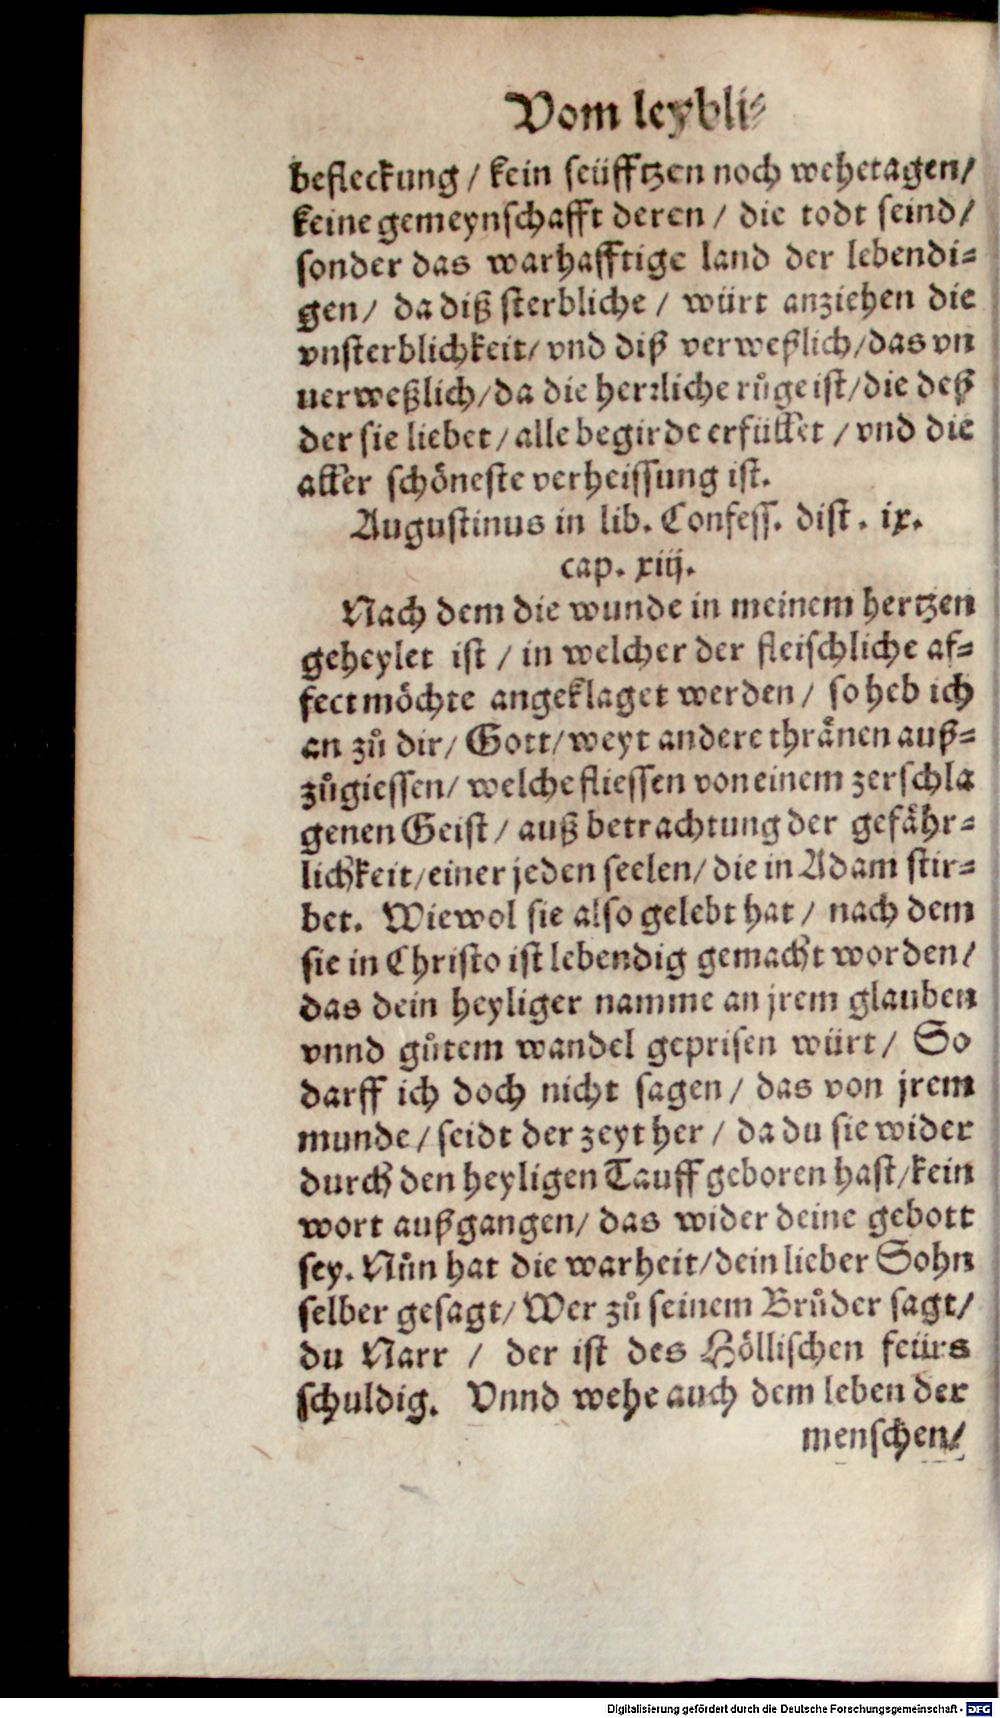 Vom leybli⸗
befleckung / kein seüfftzen noch wehetagen/
keine gemeynschafft deren / die todt seind/
sonder das warhafftige land der lebendi⸗
gen/ da diß sterbliche / würt anziehen die
vnsterblichkeit/ vnd diß verweßlich/das vn
uerweßlich/da die herrliche růge ist/die deß
der sie liebet/ alle begirde erfüllet / vnd die
aller schöneste verheissung ist.
Augustinus in lib. Confess. dist. ix.
cap. xiij.
Nach dem die wunde in meinem hertzen
geheylet ist / in welcher der fleischliche af⸗
fect möchte angeklaget werden/ so heb ich
an zů dir/ Gott/weyt andere thränen auß⸗
zůgiessen/ welche fliessen von einem zerschla
genen Geist/ auß betrachtung der gefähr⸗
lichkeit/einer jeden seelen/ die in Adam stir⸗
bet. Wiewol sie also gelebt hat / nach dem
sie in Christo ist lebendig gemacht worden/
das dein heyliger namme an jrem glauben
vnnd gůtem wandel geprisen würt/ So
darff ich doch nicht sagen / das von jrem
munde / seidt der zeyt her / da du sie wider
durch den heyligen Tauff geboren hast/kein
wort außgangen/ das wider deine gebott
sey. Nůn hat die warheit/dein lieber Sohn
selber gesagt/ Wer zů seinem Brůder sagt/
du Narr / der ist des Höllischen feürs
schuldig. Vnnd wehe auch dem leben der
menschen/
Digitalisierung gefördert durch die Deutsche Forschungsgemeinschaft - DFG